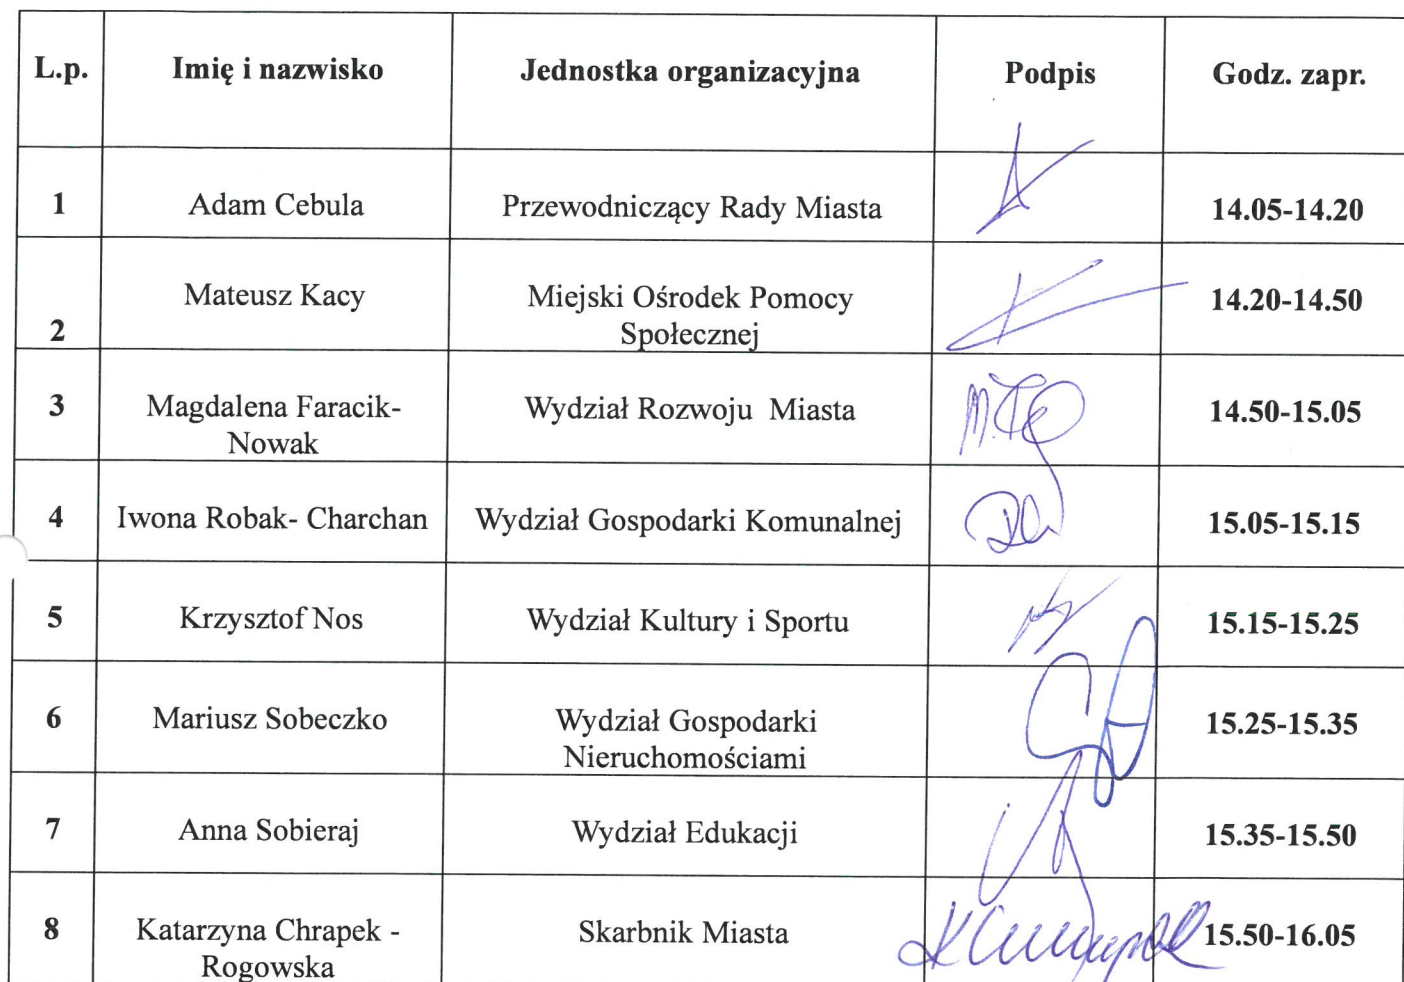 L.p. Imię i nazwisko Jednostka organizacyjna Podpis Godz. zapr.
1 Adam Cebula Przewodniczący Rady Miasta 14.05-14.20
Mateusz Kacy Miejski Ośrodek Pomocy 14.20-14.50
2 Społecznej
3 Magdalena Faracik- Wydział Rozwoju Miasta 14.50-15.05
Nowak
4 Iwona Robak- Charchan Wydział Gospodarki Komunalnej 15.05-15.15
5 Krzysztof Nos Wydział Kultury i Sportu 15.15-15.25
6 Mariusz Sobeczko Wydział Gospodarki 15.25-15.35
Nieruchomościami
7 Anna Sobieraj Wydział Edukacji 15.35-15.50
8 Katarzyna Chrapek - Skarbnik Miasta 15.50-16.05
Rogowska